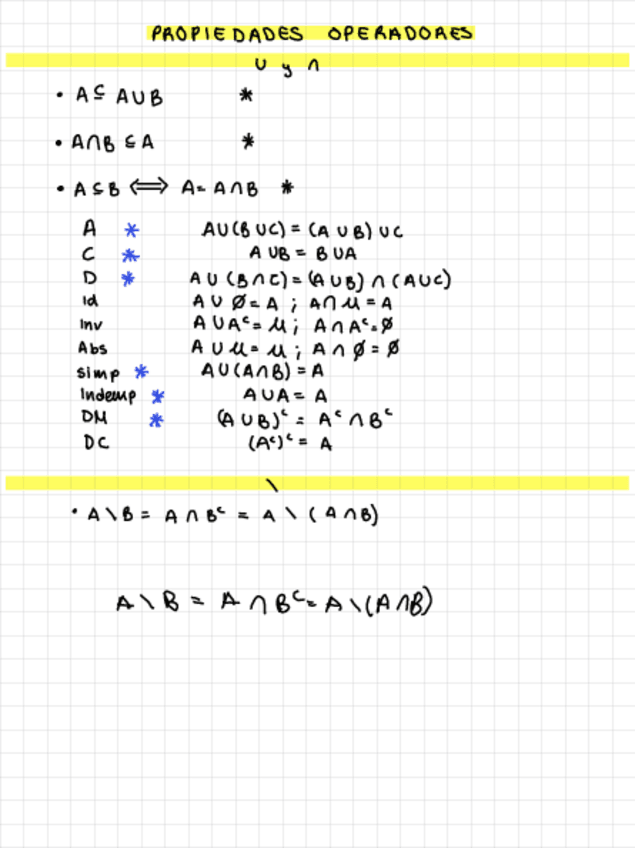 PROPIEDADES OPERADORES
∪ y ∩
• A ⊆ A∪B *
• A∩B ⊆ A *
• A ⊆ B ⟺ A = A∩B *
A * A∪(B∪C) = (A∪B)∪C
C * A∪B = B∪A
D * A∪(B∩C) = (A∪B)∩(A∪C)
Id A∪∅ = A ; A∩𝓤 = A
Inv A∪Aᶜ = 𝓤 ; A∩Aᶜ = ∅
Abs A∪𝓤 = 𝓤 ; A∩∅ = ∅
simp * A∪(A∩B) = A
Indemp * A∪A = A
DM * (A∪B)ᶜ = Aᶜ∩Bᶜ
DC (Aᶜ)ᶜ = A
\
• A\B = A∩Bᶜ = A\(A∩B)
A\B = A∩Bᶜ = A\(A∩B)